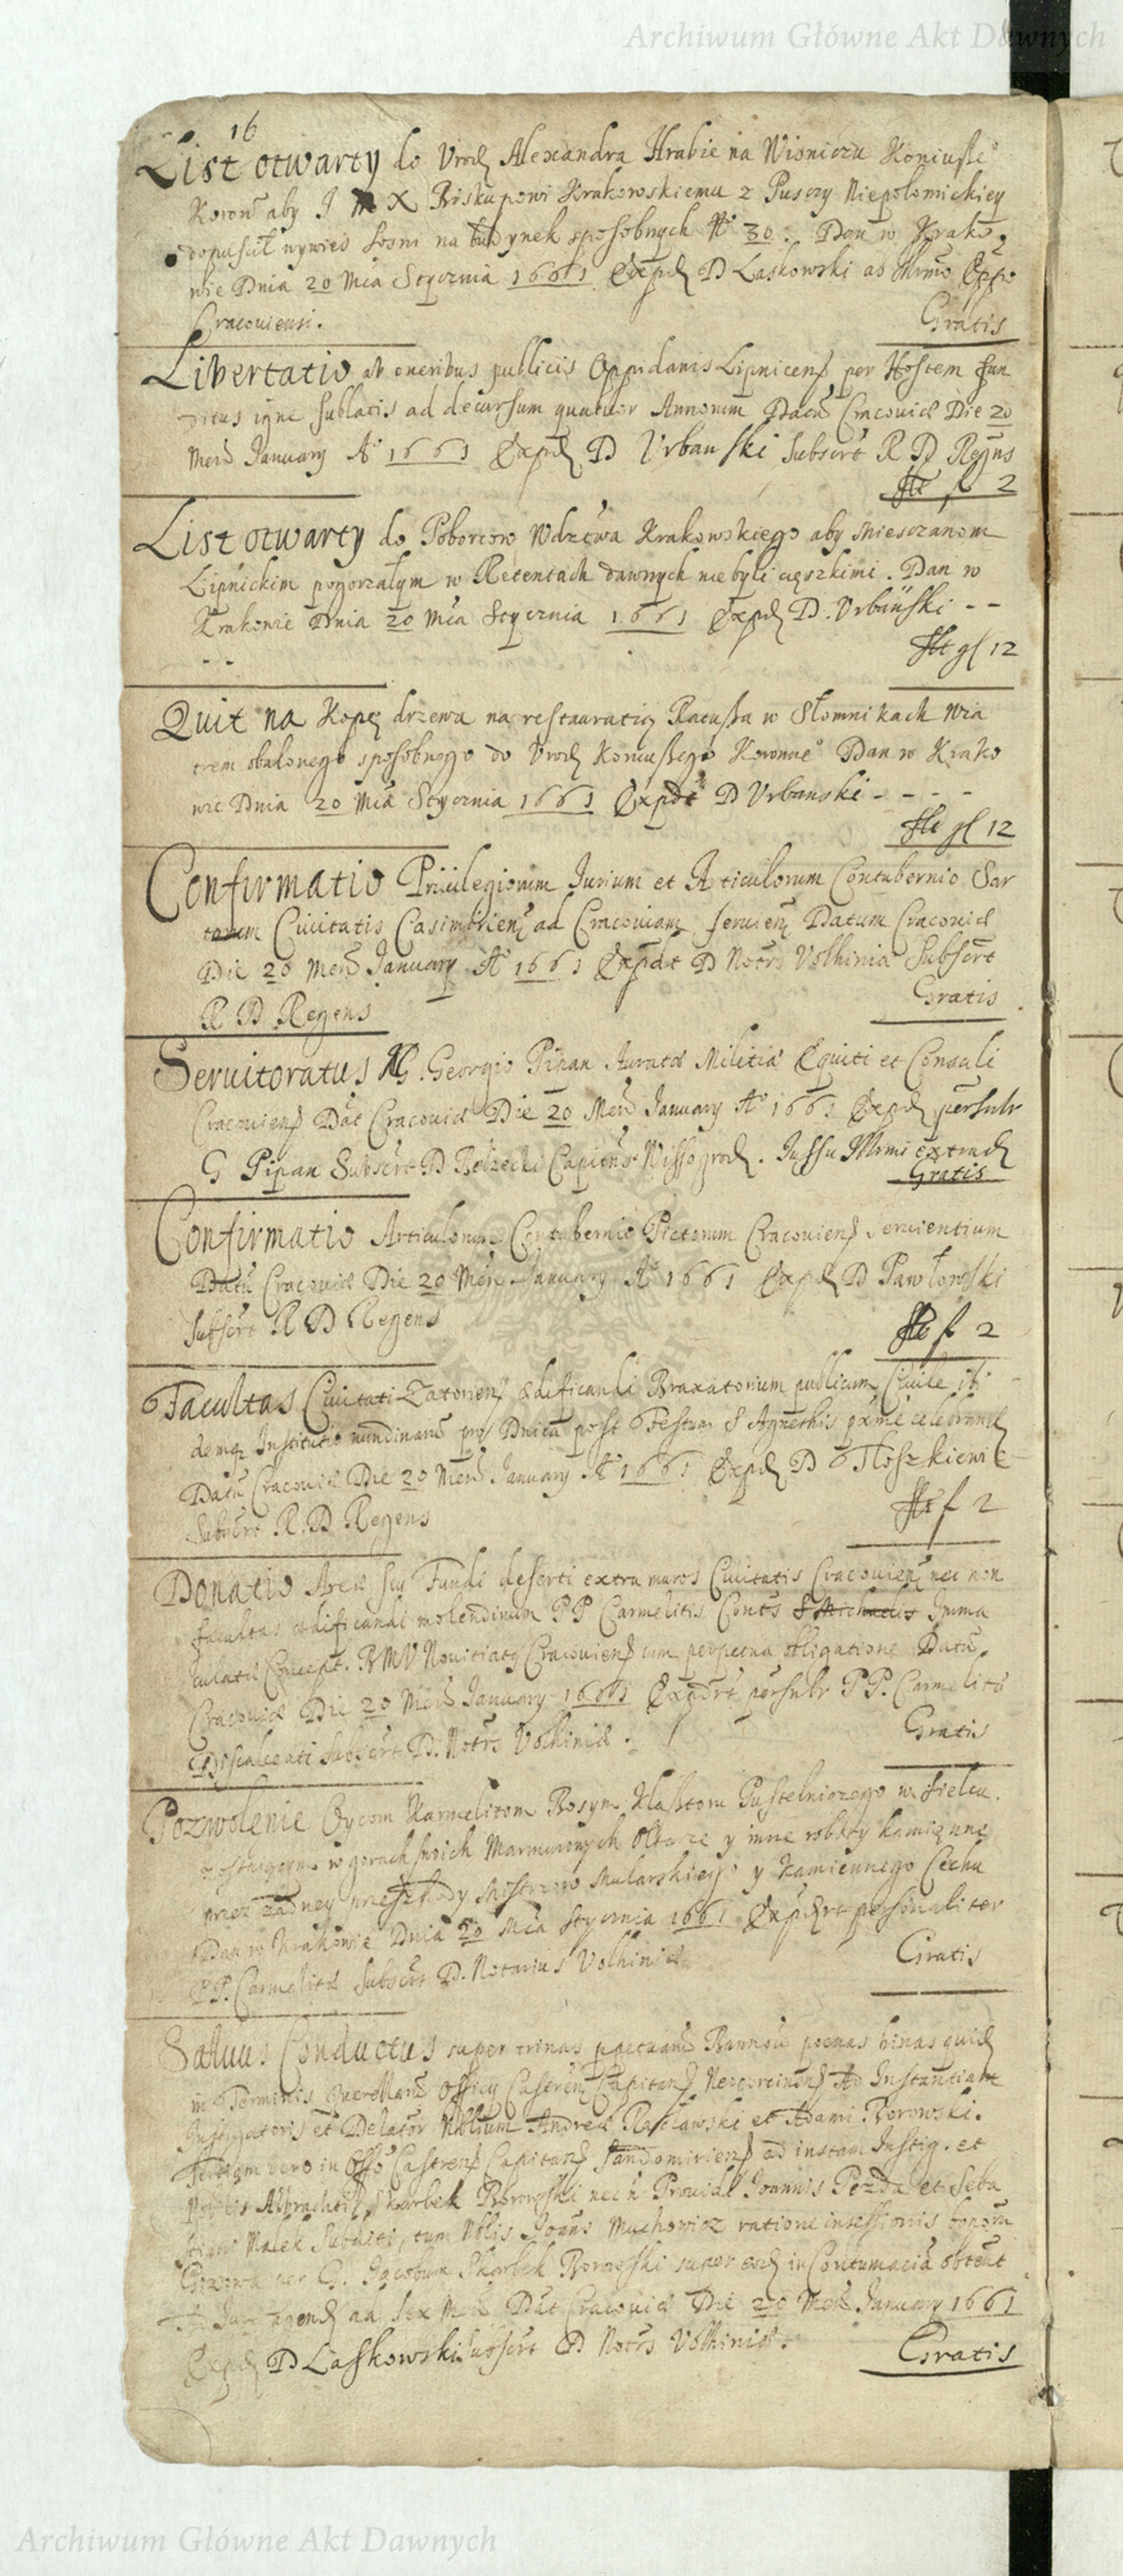 Archiwum Główne Akt Dawnych
16
List otwarty do Urodz Alexandra Hrabie na Wisniczu Koniuße°
Koron aby J M X Biskupowi Krakowskiemu z Pusczy Niepołomickiey
dopuscił wywieś sosni na budynek sposobnych N° 30. Dan w Krako
wie Dnia 20 Mca Stycznia 1661 Exped D Laskowski ab Illrmo Eppo
Cracouiensi.
Gratis
Libertatio ab oneribus publicis Oppidanis Lipnicens per Hostem fun
ditus igne sublatis ad decursum quatuor Annorum Datu Cracouiæ Die 20
Mens January A° 1661 Exped D Urbanski Subscrt R D Regns
flt f 2
List otwarty do Poborcow Wdztwa Krakowskiego aby Miesczanom
Lipnickim pogorzałym w Retentach dawnych nie byli cięszkimi. Dan w
Krakowie Dnia 20 Mca Stycznia 1661 Exped D. Urbański - -
- -
flt gl 12
Quit na Kopę drzewa na restauratią Ratußa w Słomnikach wia
trem obalonego sposobnego do Urodz Koniußego Koronne° Dan w Krako
wie Dnia 20 Mca Stycznia 1661 Expdt D Urbanski - - - -
flt gl 12
Confirmatio Priuilegiorum Jurium et Articulorum Contubernio Sar
torum Ciuitatis Casimiriens ad Cracouiam seruiens Datum Cracouiæ
Die 20 Mens January A° 1661 Expdt D Notrs Volhiniæ Subscrt
R D Regens
Gratis
Seruitoratus G. Georgio Pipan Auratæ Militiæ Equiti et Consuli
Cracouiens Dat Cracouiæ Die 20 Mens January A° 1661 Exped persnlr
G Pipan Subscrt D Bełzecki Capitns Wissogrod. Jussu Illrmi extrad
Gratis
Confirmatio Articulorum Contubernio Pictorum Cracouiens Seruientium
Datu Cracouiæ Die 20 Mens January A° 1661 Exped D Pawłowski
Subscrt R D Regens
flt f 2
Facultas Ciuitati Zatoriens ædificandi Braxatorium publicum Ciuile ibi
demq Institutio nundinaru pro Dnica post Festum S Agnethis
Datu Cracouiæ Die 20 Mens January A° 1661 Exped D Tłoszkiewic
Subscrt R. D Regens
flt f 2
Donatio Areæ seu Fundi deserti extra muros Ciuitatis Cracouiens nec non
facultas ædificandi molendinum PP Carmelitis Conts S Michaelis Imma
culatæ Concept. BMV Nouitiatg Cracouiens cum perpetua obligatione Datu
Cracouiæ Die 20 Mens January 1661 Expdrt persnlr PP. Carmelitæ
Discalceati Subscrt D. Notrs Volhiniæ.
Gratis
Pozwolenie Oycom Karmelitom Bosym Klaßtoru Pustelniczego w
w gorach swoich Marmurowych Ołtarze y inne roboty kamięnne
przez żadney przeszkody Mistrzow Mularskiego y Kamiennego Cechu
Dan w Krakowie Dnia 20 Mca Stycznia 1661 Expdrt personaliter
PP. Carmelitæ Subscrt D. Notarius Volhiniæ
Gratis
Saluus Conductus super trinas Bannou pœnas binas quid
in Terminis Querellaru Officy Castrens Capitans Ad Instantiam
Instigatoris et Delator Nblium Andreæ Racławski et Adami Borowski.
Tertiam vero in Offo Castrens Capitans Sandomiriens ad instam Instig. et
Nobilis Albrachti Skarbek Borowski nec n Prouid Joannis Pezda et Seba
stiani Małek Subditi, tum Nblis Joans Muchowicz ratione insessionis bonoru
per G. Jacobum Skarbek Borowski super eod in Contumacia obtent
agend ad sex Mens Dat Cracouiæ Die 20 Mens January 1661
Exped D Laßkowski Subscrt D Notrs Volhiniæ.
Gratis
Archiwum Główne Akt Dawnych